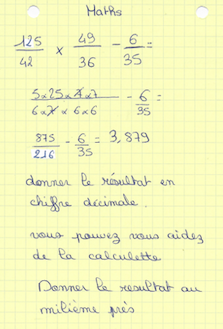 Maths
125/42 × 49/36 − 6/35 =
5×25×7×7/6×7×6×6 − 6/35 =
875/216 − 6/35 = 3,879
donner le résultat en
chiffre décimale.
vous pouvez vous aidez
de la calculette
Donner le resultat au
milième près